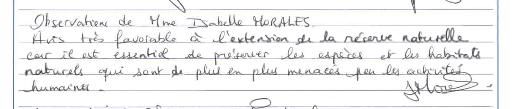 Observations de Mme Isabelle MORALES.
Avis très favorable à l'extension de la réserve naturelle
car il est essentiel de préserver les espèces et les habitats
naturels qui sont de plus en plus menacés par les activités
humaines.